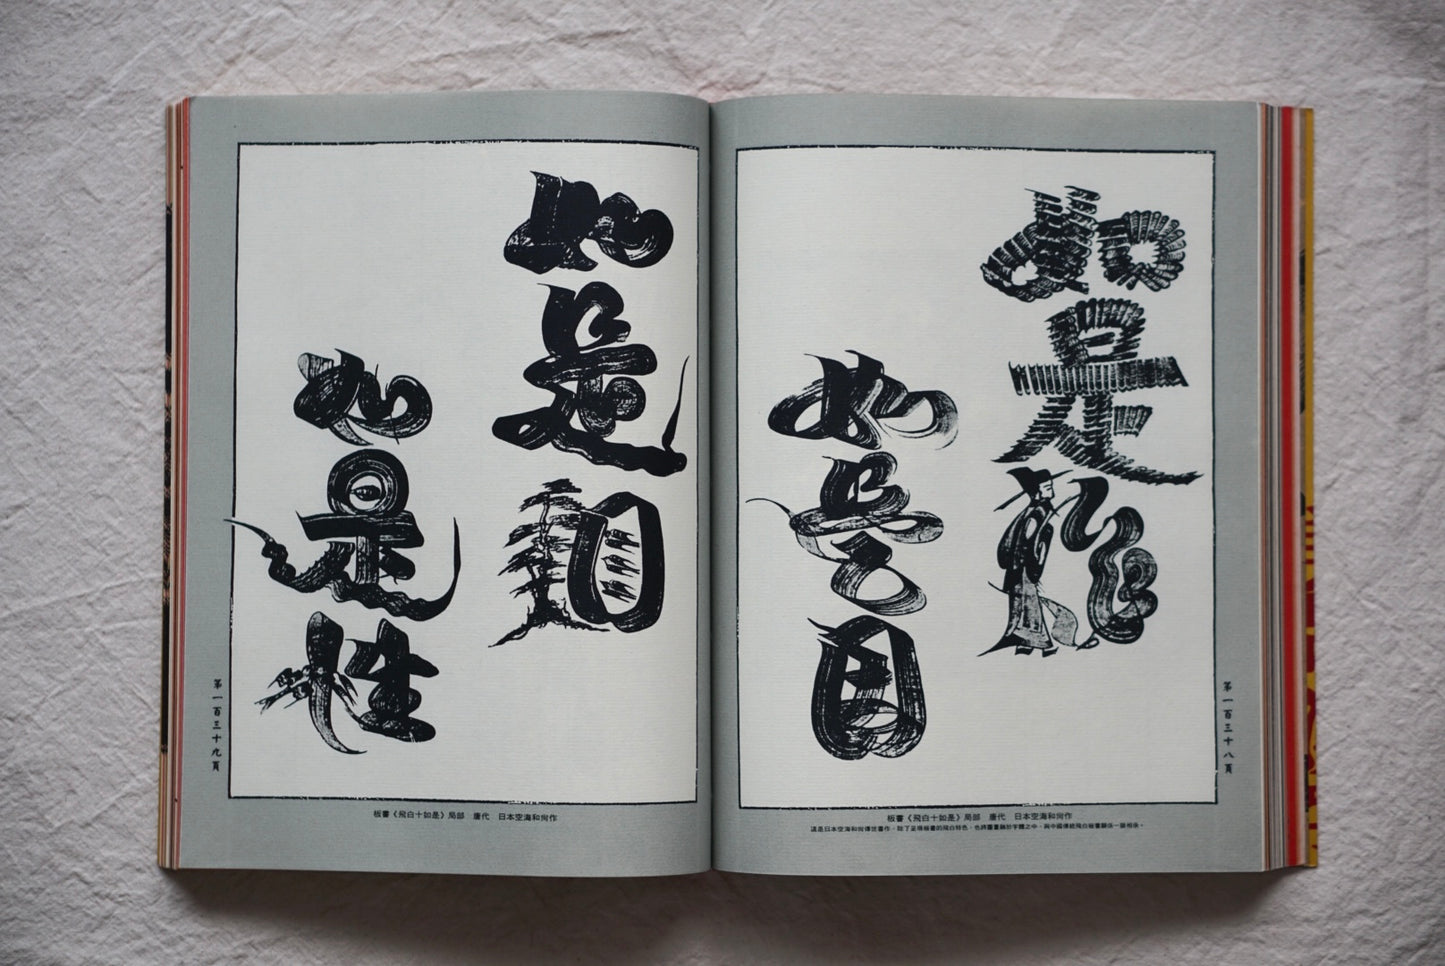 如是作
如是因
第一百三十八頁
板書《飛白十如是》局部　唐代　日本空海和尚作
這是日本空海和尚傳世書作，除了呈現板書的飛白特色，也將圖畫融於字體之中，與中國傳統飛白板書關係一脈相承。
如是相
如是性
第一百三十九頁
板書《飛白十如是》局部　唐代　日本空海和尚作